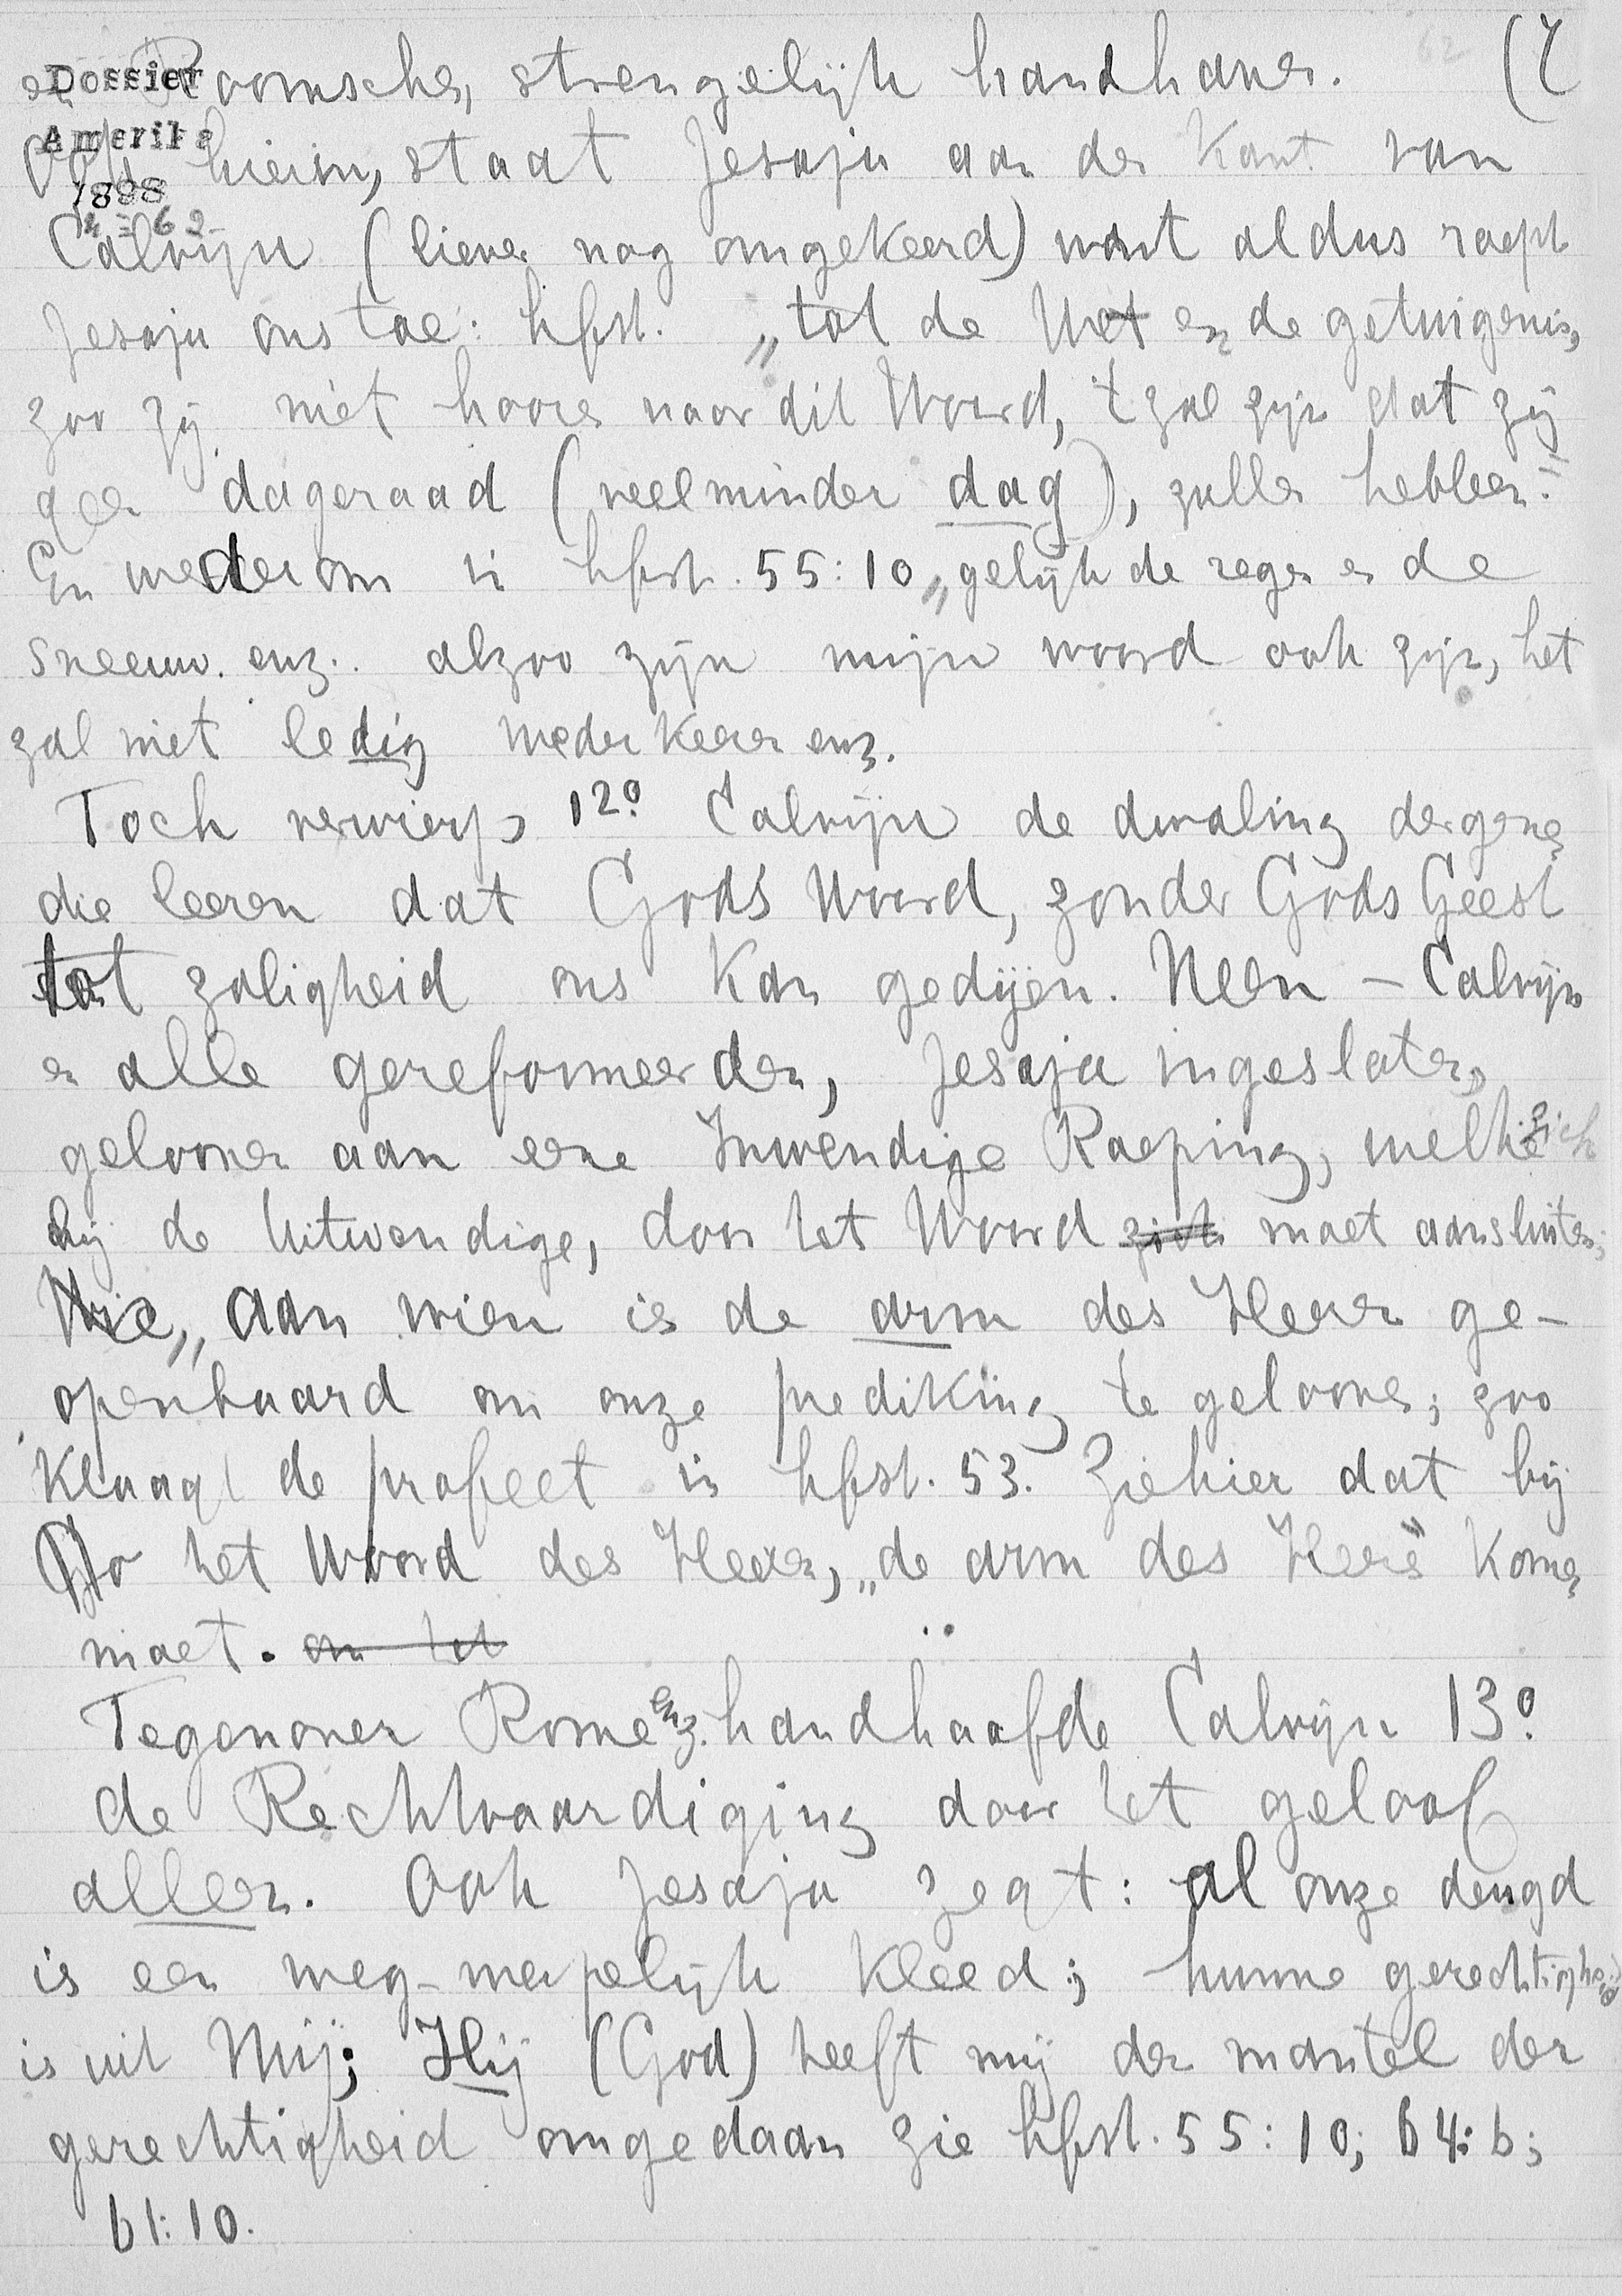 Dossier
Amerika
1898
62
(7
en Roomschen, strengelijk handhaven.
Ook hierin, staat Jesaja aan den Kant van
Calvijn (liever nog omgekeerd) want aldus roept
Jesaja ons toe: hfst. „tot de Wet en de getuigenis,
zoo zij niet hooren naar dit Woord, 't zal zijn dat zij
geen dageraad (veelminder dag), zullen hebben."
En wederom in hfst. 55:10 „gelijk de regen en de
sneeuw. enz. alzoo zijn mijn woord ook zijn, het
zal niet ledig wederkeeren enz.
Toch verwierp 12o Calvijn de dwaling dergenen
die leeren dat Gods Woord, zonder Gods Geest
tot zaligheid ons kan gedijen. Neen – Calvijn
en alle gereformeerden, Jesaja ingesloten,
gelooven aan eene Inwendige Roeping, welke zich
bij de Uitwendige, door het Woord zich moet aansluiten;
Wie „Aan wien is de arm des Heeren ge-
openbaard om onze prediking te gelooven; zoo
klaagt de profeet in hfst. 53. Ziehier dat bij
het Woord des Heeren, „de arm des Heeren" komen
moet. om het
Tegenover Rome enz. handhaafde Calvijn 13o
de Rechtvaardiging door het geloof
alleen. Ook Jesaja zegt: al onze deugd
is een weg-werpelijk kleed; hunne gerechtigheid
is uit Mij; Hij (God) heeft mij den mantel der
gerechtigheid omgedaan zie hfst. 55:10; 64:6;
61:10.